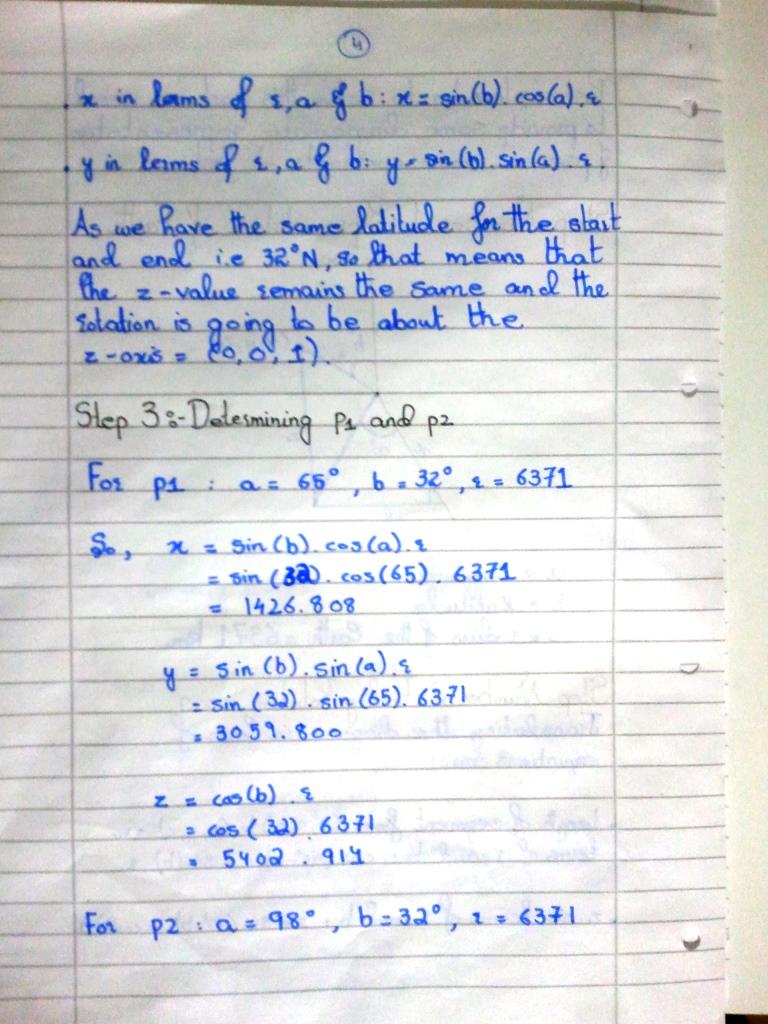 4
. x in terms of r, a & b : x = sin(b). cos(a). r
. y in terms of r, a & b: y = sin(b). sin(a). r.
As we have the same latitude for the start
and end i.e 32°N, so that means that
the z-value remains the same and the
rotation is going to be about the
z-axis = (0, 0, 1).
Step 3:- Determining p1 and p2
For p1 : a = 65°, b = 32°, r = 6371
So, x = sin(b). cos(a). r
= sin (32). cos(65). 6371
= 1426.808
y = sin (b). sin(a). r
= sin (32). sin (65). 6371
= 3059.800
z = cos(b) . r
= cos (32) . 6371
= 5402.914
For p2 : a = 98°, b = 32°, r = 6371